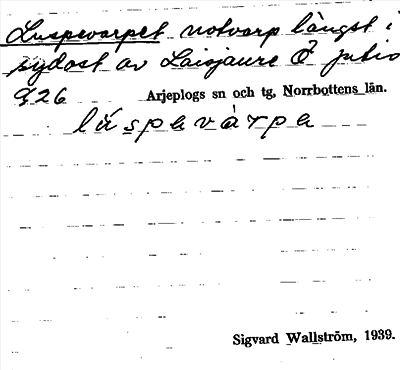 Luspevarpet notvarp längst i
sydost av Laisjaure
926
Arjeplogs sn och tg, Norrbottens län.
lúspavàrpa
Sigvard Wallström, 1939.